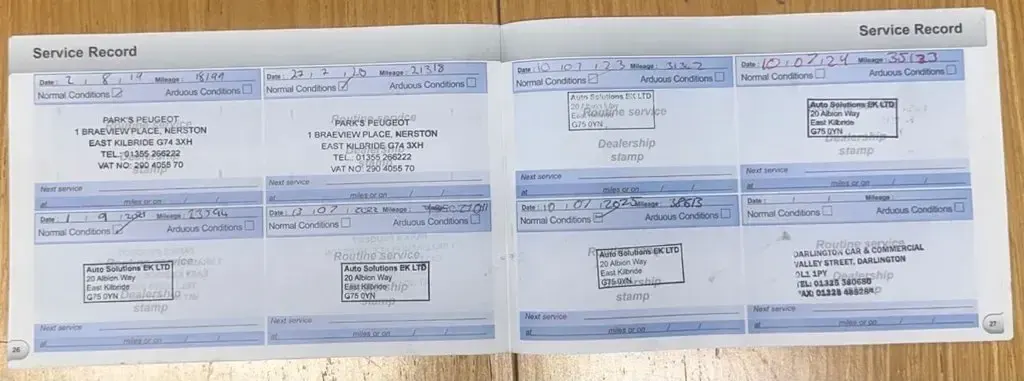 Service Record
Date: 2, 8, 19 Mileage: 18199
Normal Conditions Arduous Conditions
Routine service
PARK'S PEUGEOT
1 BRAEVIEW PLACE, NERSTON
EAST KILBRIDE G74 3XH
TEL.: 01355 266222
VAT NO: 290 4055 70
Dealership
stamp
Next service
at miles or on / /
Date: 27, 7, 20 Mileage: 21318
Normal Conditions Arduous Conditions
Routine service
PARK'S PEUGEOT
1 BRAEVIEW PLACE, NERSTON
EAST KILBRIDE G74 3XH
TEL.: 01355 266222
VAT NO: 290 4055 70
Dealership
stamp
Next service
at miles or on / /
Date: 1, 9, 2021 Mileage: 23794
Normal Conditions Arduous Conditions
Routine service
Auto Solutions EK LTD
20 Albion Way
East Kilbride
G75 0YN
Dealership
stamp
Next service
at miles or on / /
Date: 13, 07, 2022 Mileage:
Normal Conditions Arduous Conditions
Routine service
Auto Solutions EK LTD
20 Albion Way
East Kilbride
G75 0YN
Dealership
stamp
Next service
at miles or on / /
26
Service Record
Date: 10, 07, 23 Mileage: 31362
Normal Conditions Arduous Conditions
Auto Solutions EK LTD
20 Albion Way
East Kilbride
G75 0YN
Routine service
Dealership
stamp
Next service
at miles or on / /
Date: 10, 07, 24 Mileage: 35123
Normal Conditions Arduous Conditions
Auto Solutions EK LTD
20 Albion Way
East Kilbride
G75 0YN
Routine service
Dealership
stamp
Next service
at miles or on / /
Date: 10, 07, 2025 Mileage: 38613
Normal Conditions Arduous Conditions
Routine service
Auto Solutions EK LTD
20 Albion Way
East Kilbride
G75 0YN
Dealership
stamp
Next service
at miles or on / /
Date: / / Mileage
Normal Conditions Arduous Conditions
Routine service
DARLINGTON CAR & COMMERCIAL
VALLEY STREET, DARLINGTON
DL1 1PY
TEL: 01325 380680
Dealership
stamp
Next service
at miles or on / /
27